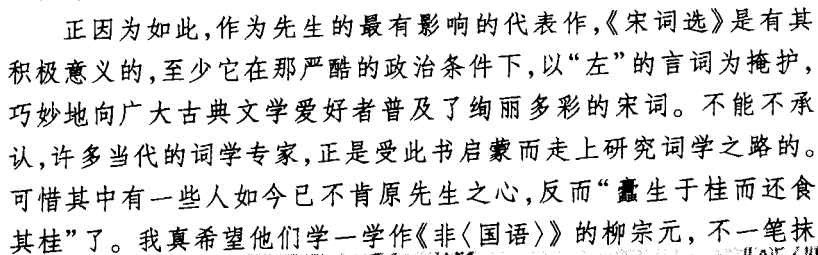 正因为如此,作为先生的最有影响的代表作,《宋词选》是有其
积极意义的,至少它在那严酷的政治条件下,以“左”的言词为掩护,
巧妙地向广大古典文学爱好者普及了绚丽多彩的宋词。不能不承
认,许多当代的词学专家,正是受此书启蒙而走上研究词学之路的。
可惜其中有一些人如今已不肯原先生之心,反而“蠹生于桂而还食
其桂”了。我真希望他们学一学作《非〈国语〉》的柳宗元,不一笔抹